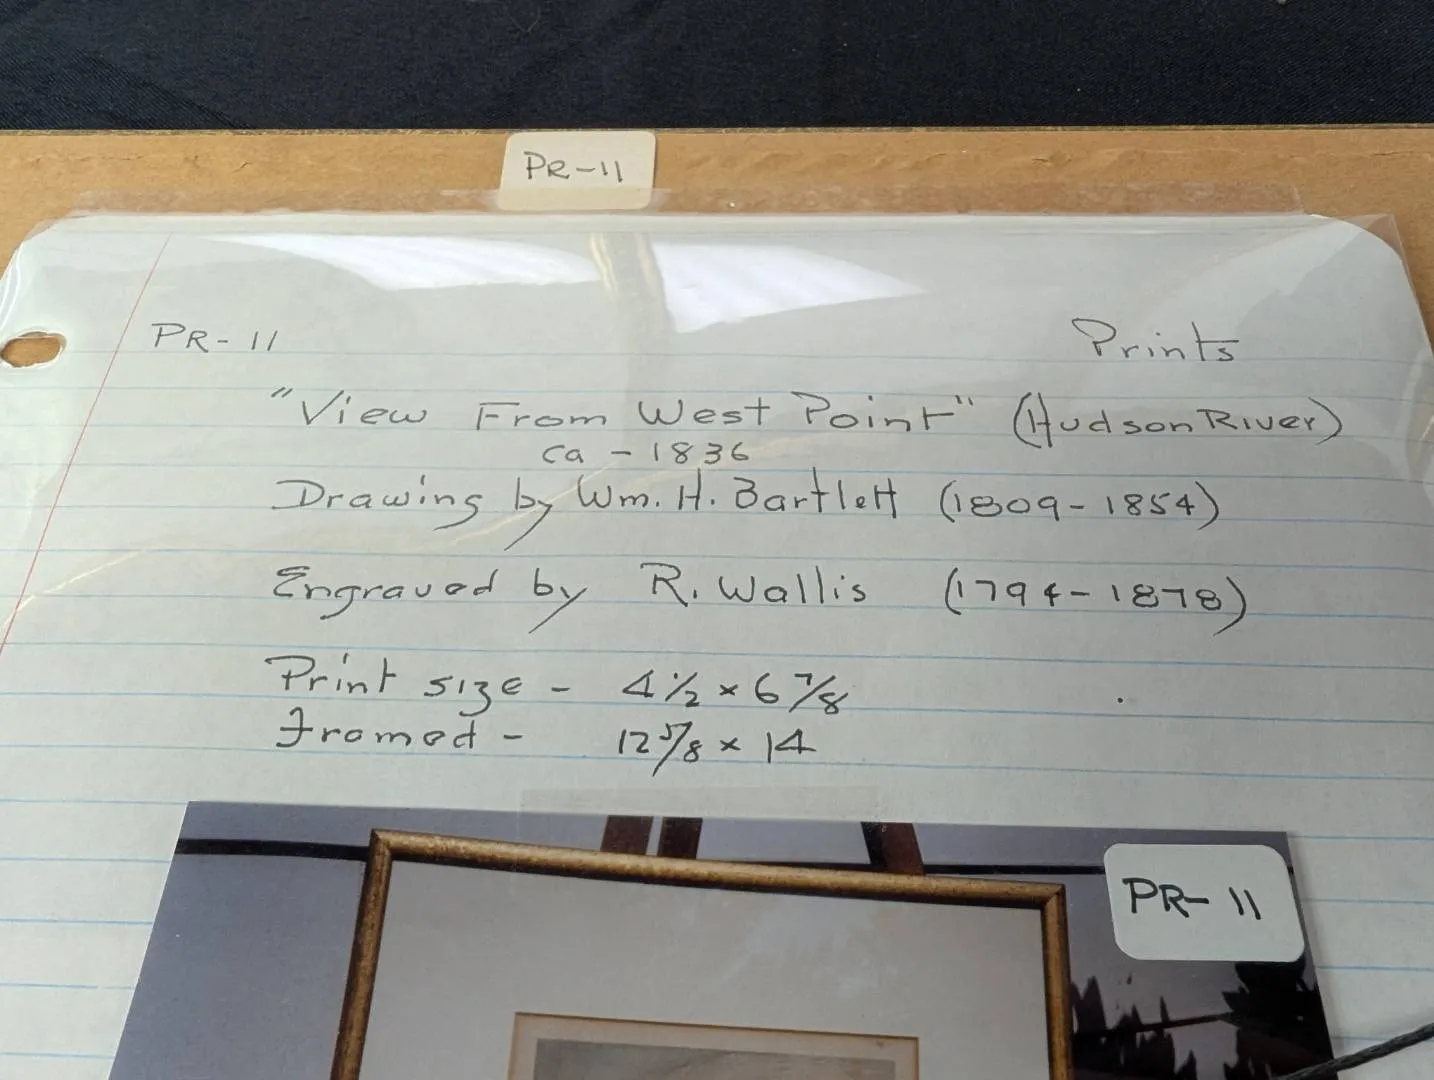 PR-11
PR-11 Prints
"View From West Point" (Hudson River)
ca - 1836
Drawing by Wm. H. Bartlett (1809-1854)
Engraved by R. Wallis (1794-1878)
Print size - 4 1/2 x 6 7/8
Framed - 12 5/8 x 14
PR-11